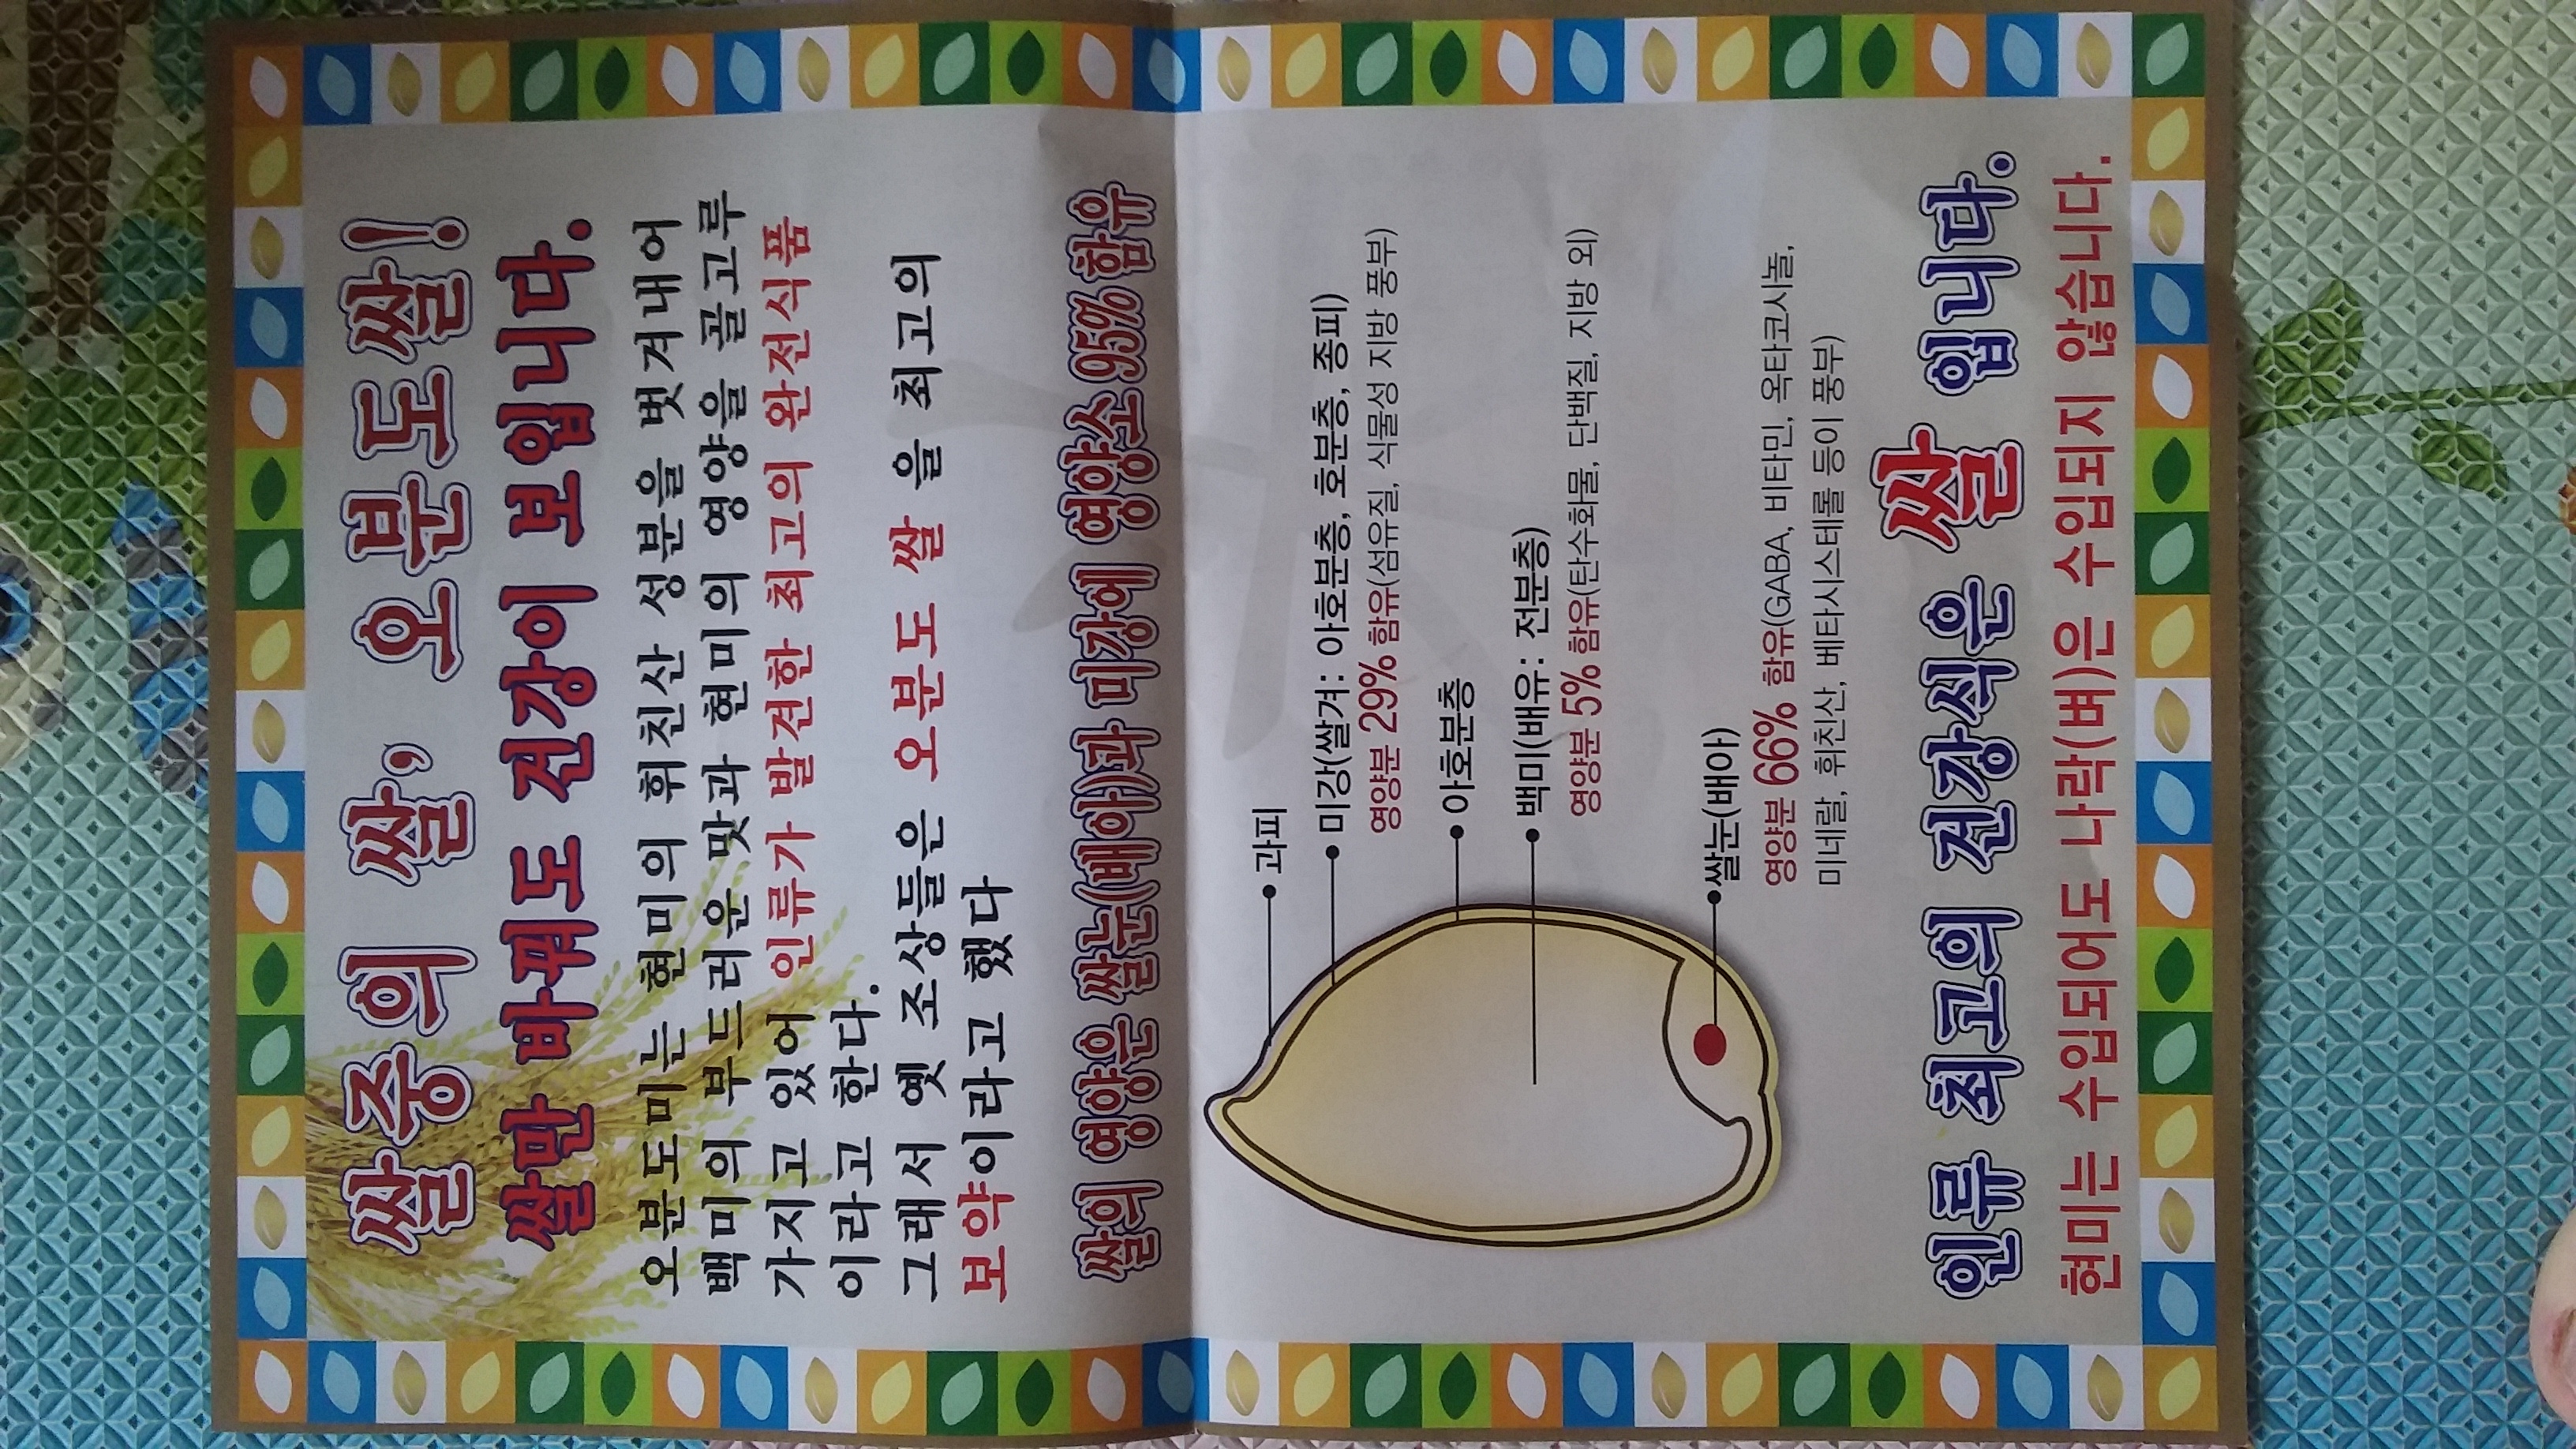 쌀중의 쌀, 오분도쌀!
쌀만 바꿔도 건강이 보입니다.
오분도미는 현미의 휘친산 성분을 벗겨내어
백미의 부드러운 맛과 현미의 영양을 골고루
가지고 있어 인류가 발견한 최고의 완전식품
이라고 한다.
그래서 옛 조상들은 오분도 쌀 을 최고의
보약이라고 했다
쌀의 영양은 쌀눈(배아)과 미강에 영양소 95% 함유
과피
미강(쌀겨: 아호분층, 호분층, 종피)
영양분 29% 함유(섬유질, 식물성 지방 풍부)
아호분층
백미(배유: 전분층)
영양분 5% 함유(탄수화물, 단백질, 지방 외)
쌀눈(배아)
영양분 66% 함유(GABA, 비타민, 옥타코시놀,
미네랄, 휘친산, 베타시스테롤 등이 풍부)
인류 최고의 건강식은 쌀 입니다.
현미는 수입되어도 나락(벼)은 수입되지 않습니다.